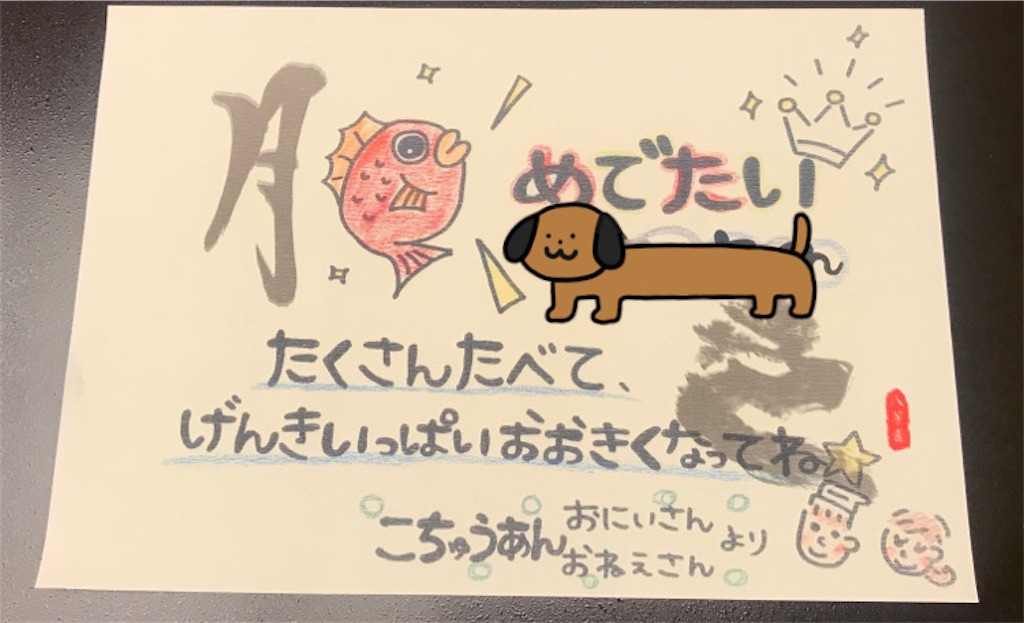 月
めでたい
たくさんたべて、
げんきいっぱいおおきくなってね
こちゅうあん おにいさん おねえさん より